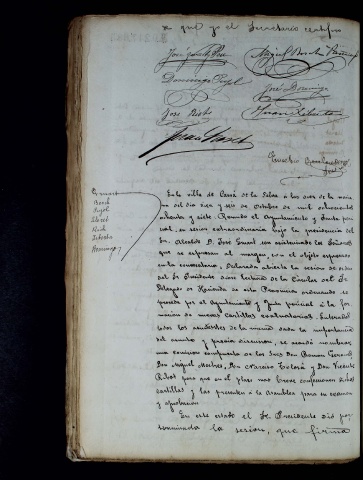 de que yo el Secretario certifico
Domingo Pujol
José Domingo
José Rich
Juan Lloret
Eusebio
Gruart
Bosch
Pujol
Lloret
Rich
Domingo
En la villa de Cassá de la Selva a los diez de la maña
na del dia diez y seis de Octubre de mil ochocientos
ochenta y siete. Reunido el Ayuntamiento y Junta peri
cial, en sesion extraordinaria bajo la presidencia del
Sr. Alcalde D. José Gruart con asistencia de los Señores
que se expresan al margen, con el objeto expresado
en la convocatoria, Declarada abierta la sesion de orden
del Sr. Presidente dióse lectura de la Circular del Sr.
Delegado de Hacienda de esta Provincia ordenando se
proceda por el Ayuntamiento y Junta pericial á la for
macion de nuevas cartillas evaluatorias. Enterados
todos los asistentes de la misma dada la importancia
del asunto y previa discusion, se acordó nombrar
una comision compuesta de los Sres Don Ramon
Don Miguel Don Narciso y Don Vicente
Ribas para que en el plazo mas breve confeccionen dichas
cartillas y las presenten á la Asamblea para su examen
y aprobacion.
En este estado el Sr. Presidente dió por
terminada la sesion, que firma